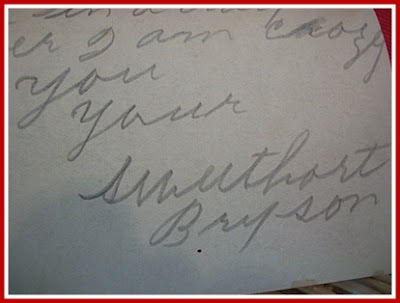 er I am crozy
you
your
sweethort
Bryson